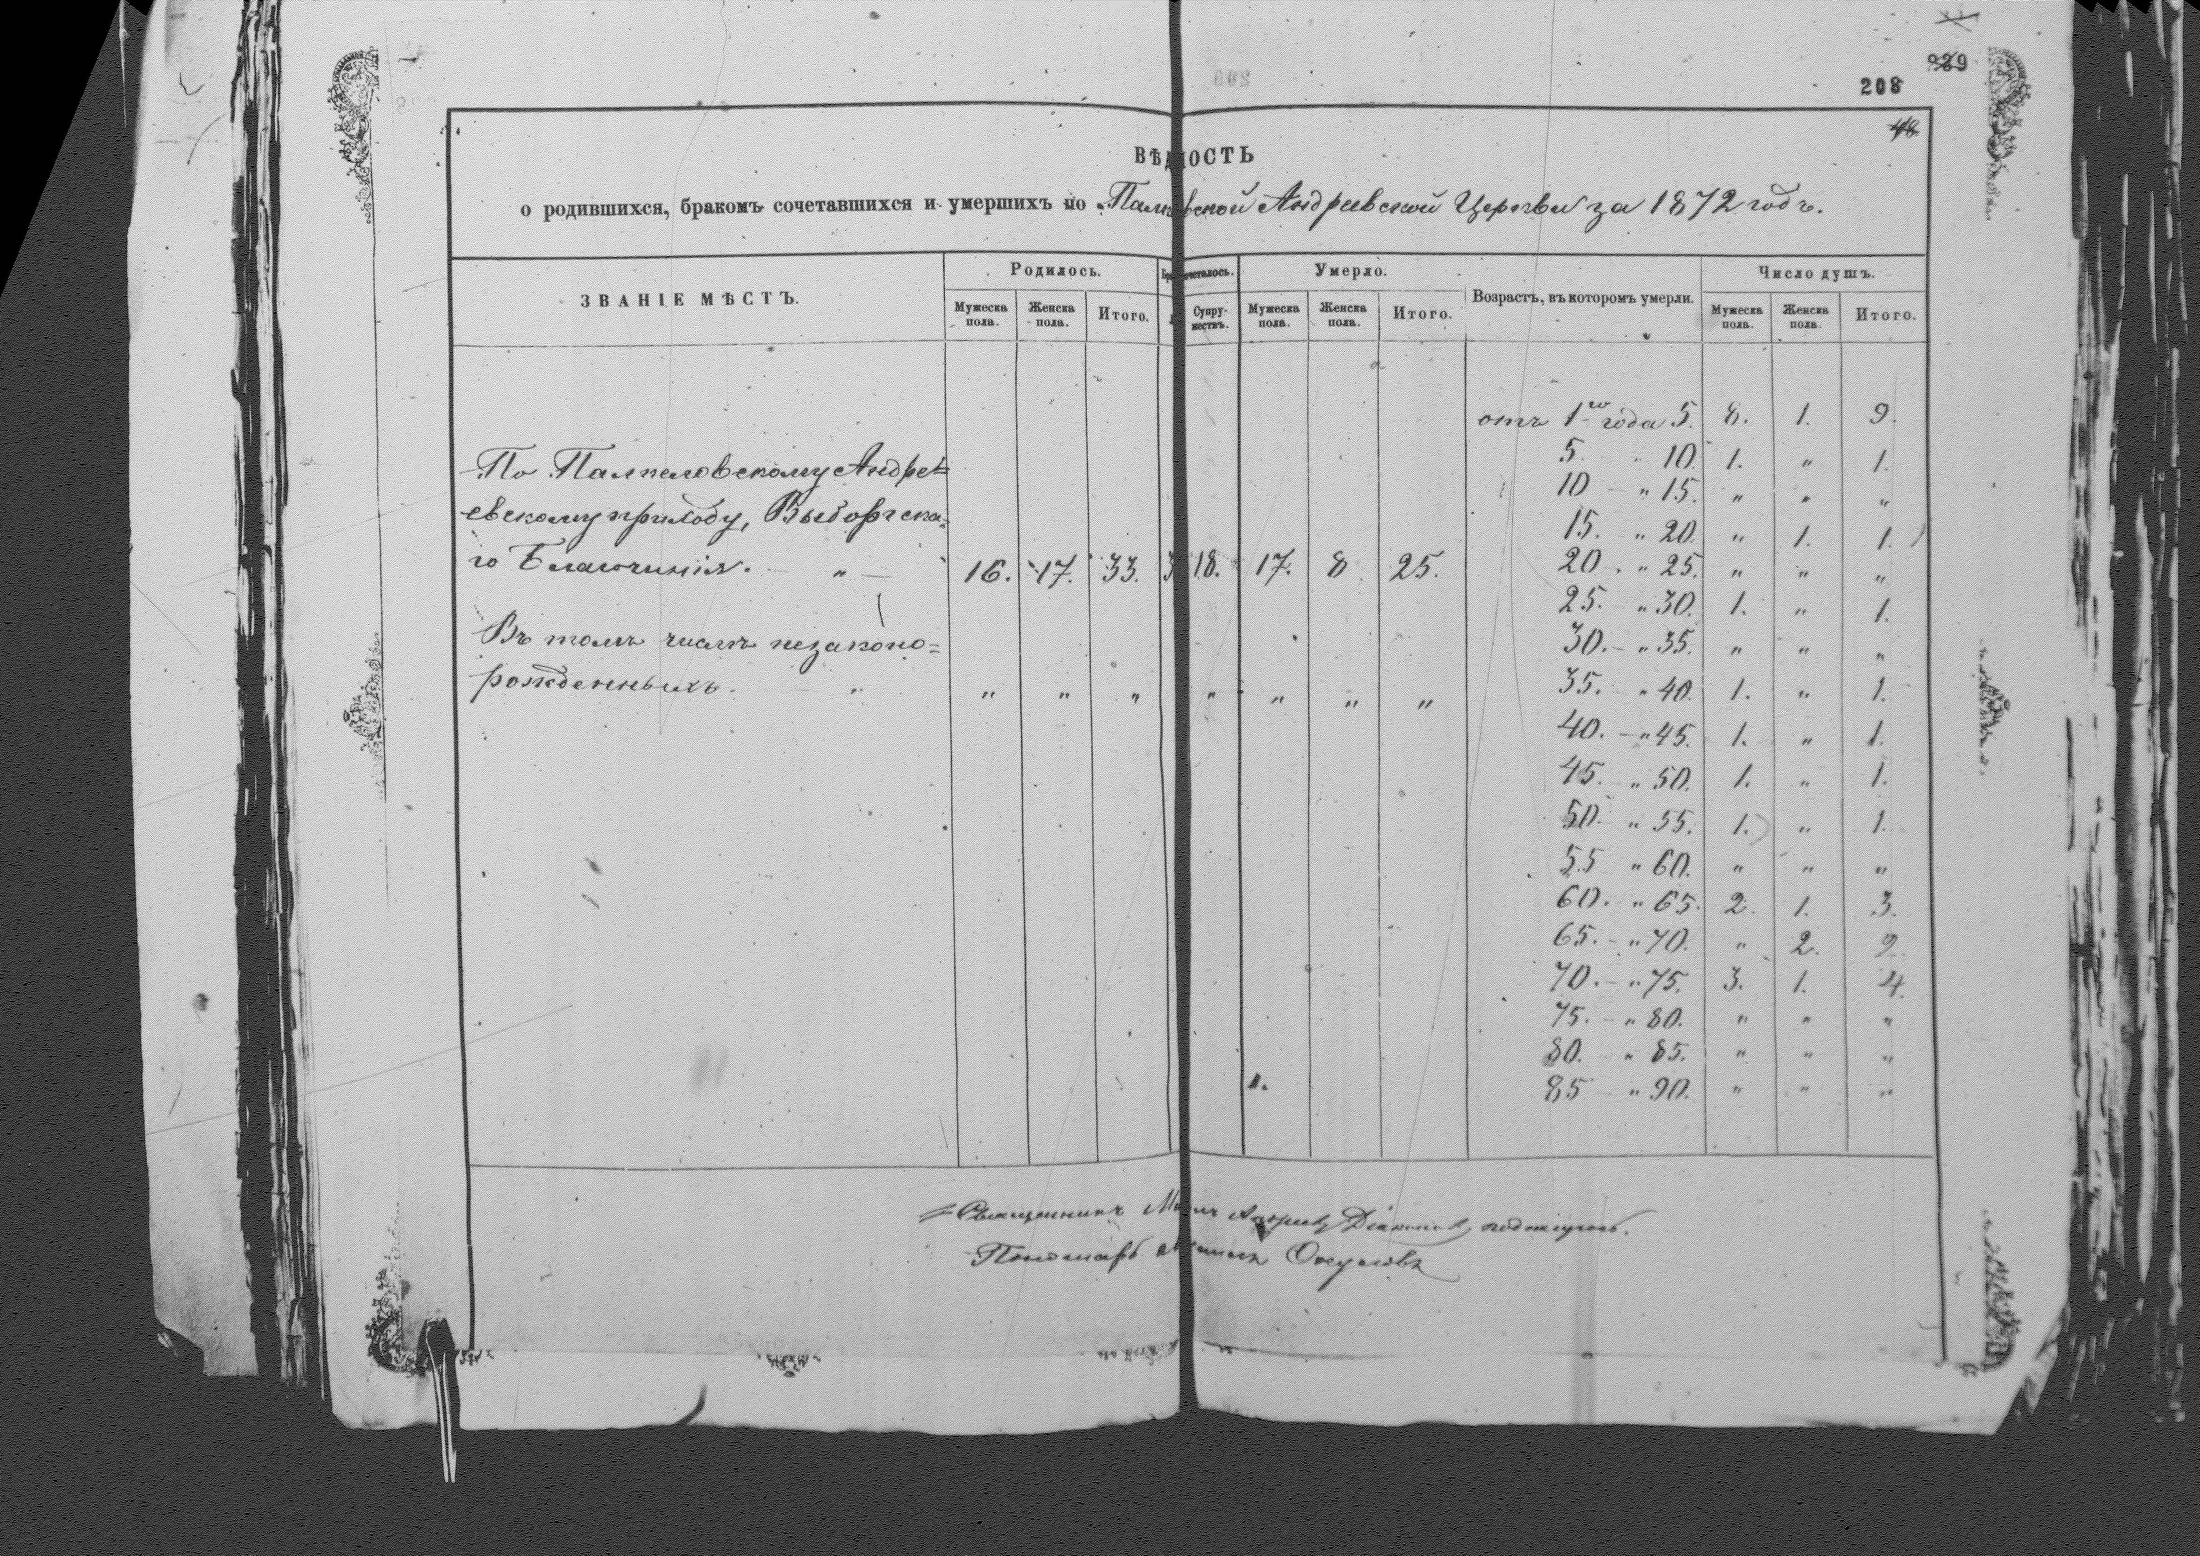 939
208
48
ВѢДОСТЬ
о родившихся, бракомъ сочетавшихся и умершихъ по Андреевской Церкви за 1872 годъ.
ЗВАНІЕ МѢСТЪ. Родилось. Умерло. Возрастъ, въ которомъ умерли. Число душъ.
Мужеска пола. Женска пола. Итого. Супружествъ. Мужеска пола. Женска пола. Итого. Мужеска пола. Женска пола. Итого.
отъ 1го года 5. 8. 1. 9.
По Палкеловскому Андре=
5. " 10. 1. " 1.
10 — " 15. " " "
евскому приходу, Выборгска=
15. " 20. " 1. 1.
го Благочинія. — " — 16. 17. 33. 18. 17. 8 25.
20. " 25. " " "
25. " 30. 1. " 1.
Въ томъ числѣ незаконо=
30. — " 35. " " "
рожденныхъ. " " " " " " " "
35. " 40. 1. " 1.
40. — " 45. 1. " 1.
45. " 50. 1. " 1.
50. " 55. 1. " 1.
55 " 60. " " "
60. " 65. 2. 1. 3.
65. — " 70. " 2. 2.
70. — " 75. 3. 1. 4.
75. — " 80. " " "
80. " 85. " " "
85 " 90. " " "
Священникъ
Пономарь